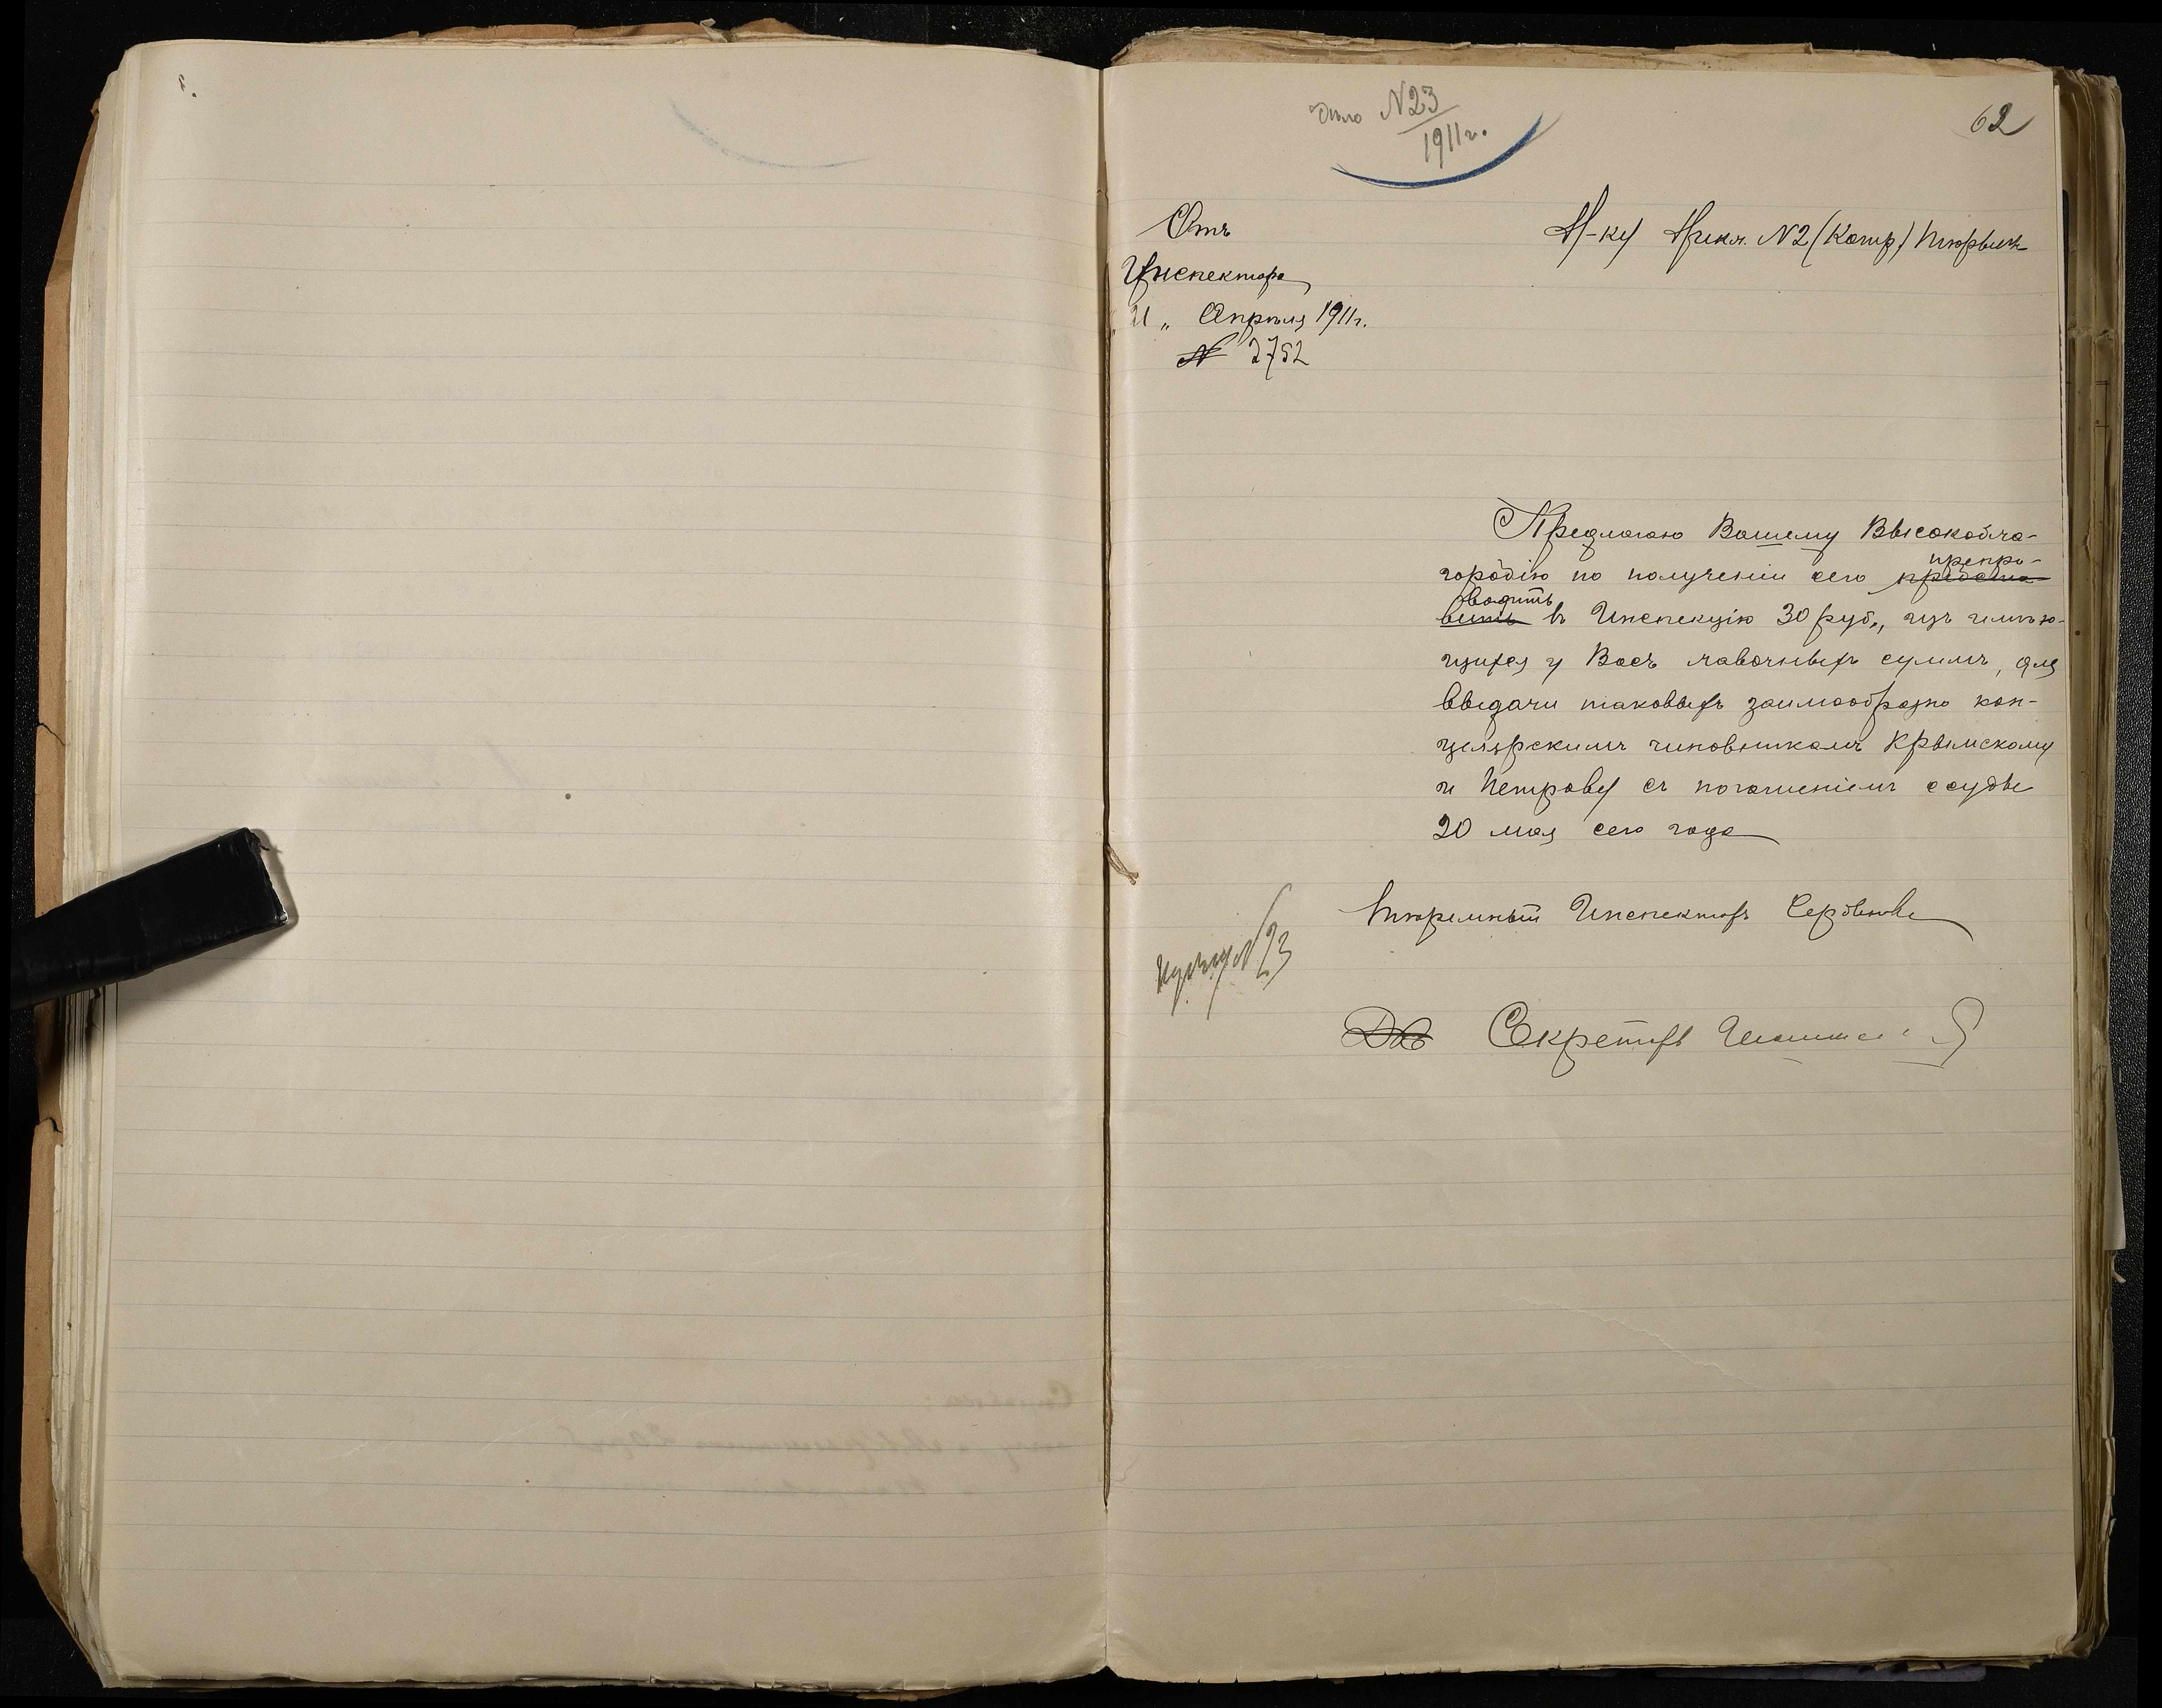 Дѣло N23
1911 г.
62
Отъ
Инспектора
21 „ Апрѣля 1911 г.
N 2752
Н-ку Прикл. N2 (Катор) тюрьмы
Предлагаю Вашему Высокобла-
городію по полученіи сего предста- препро-
вить водить въ Инспекцію 30 руб., изъ имѣю-
щихся у Васъ лавочныхъ суммъ, для
выдачи таковыхъ заимообразно кан-
целярскимъ чиновникамъ Крымскому
и Петрову съ погашеніемъ ссуды
20 мая сего года
Тюремный Инспекторъ
N23
Секретарь